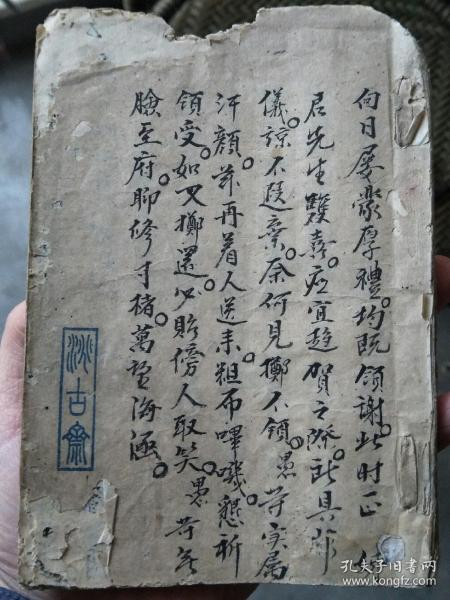 向日屡蒙厚禮。均既領謝。此时正
居先生雙喜。宜趋賀之際。欤具菲
儀。諒不遐棄。奈何見擲不領。愚等實属
汗顔。茲再着人送来粗布嗶嘰。懇祈
領受。如又擲還。必貽傍人取笑。愚等無
臉至府。聊修寸楮。萬望海涵。
古齋
孔夫子旧书网
www.kongfz.com